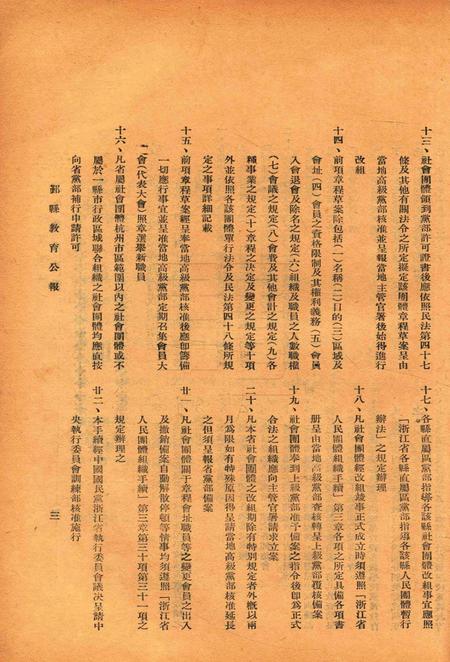 十三、社會團體領到黨部許可證書後應依照民法第四十七
條及其他有關法令之所定擬定該團體章程草案呈由
當地高級黨部核准並呈報當地主管官署後始得進行
改組
十四、前項章程草案除包括（一）名稱（二）目的（三）區域及
會址（四）會員之資格限制及其權利義務（五）會員
入會退會及除名之規定（六）組織及職員之人數職權
（七）會議之規定（八）會費及其他會計之規定（九）各
種事業之規定（十）章程之決定及變更之規定等十項
外並依照各該團體單行法令及民法第四十八條所規
定之事項詳細記載
十五、前項章程草案經呈奉當地高級黨部核准後應卽籌備
一切應行事宜並呈准當地高級黨部定期召集會員大
會（代表大會）照章選舉新職員
十六、凡省屬社會團體杭州市區範圍以內之社會團體或不
屬於一縣市行政區域聯合組織之社會團體均應直接
向省黨部補行申請許可
鄞縣教育公報
十七、各縣直屬區黨部指導各該縣社會團體改組事宜應照
「浙江省各縣直屬區黨部指導各該縣人民團體暫行
辦法」之規定辦理
十八、凡社會團體經改組竣事正式成立時須遵照「浙江省
人民團體組織手續」第三章各項之所定具備各項書
册呈由當地高級黨部查核轉呈上級黨部覆核備案
十九、社會團體奉到上級黨部准予備案之指令後卽爲正式
合法之組織應向主管官署請求立案
二十、凡本省社會團體之改組期除有特別規定者外槪以兩
月爲限如有特殊原因得呈請當地高級黨部核准延長
之但須呈報省黨部備案
廿一、凡社會團體關于章程會址職員等之變更會員之出入
及撤銷備案自動解散停頓等情事均須遵照「浙江省
人民團體組織手續」第三章第三十項第三十一項之
規定辦理之
廿二、本手續經中國國民黨浙江省執行委員會議决呈請中
央執行委員會訓練部核准施行
三